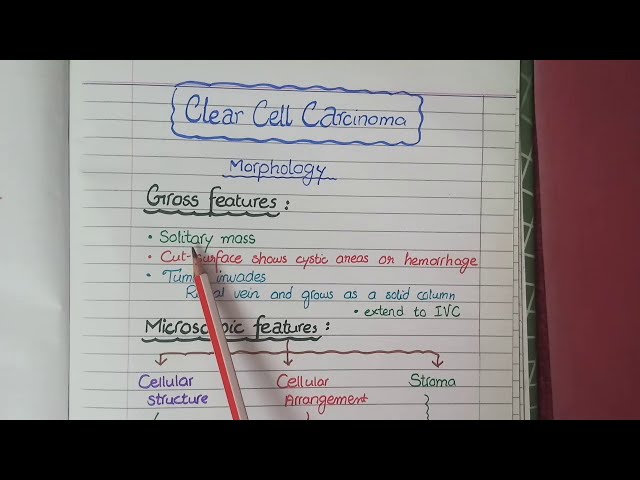 Clear Cell Carcinoma
Morphology
Gross features :
• Solitary mass
• Cut-surface shows cystic areas or hemorrhage
• Tumor invades
Renal vein and grows as a solid column
• extend to IVC
Microscopic features :
Cellular structure
Cellular Arrangement
Stroma